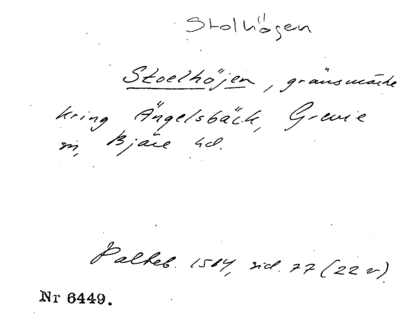 Stolhögen
Stoelhöjen, gränsmärke
kring Ängelsbäck, Grevie
sn, Bjäre hd.
Palteb. 1584, sid. 77 (22 v)
Nr 6449.